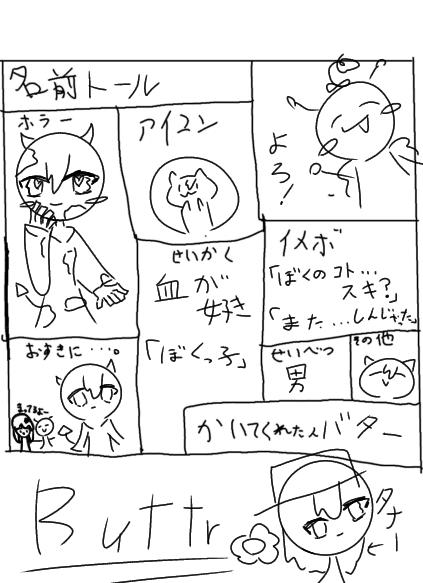 名前トール
ホラー
アイコン
よろ!
せいかく
血が
好き
「ぼくっ子」
イメボ
「ぼくのコト…
スキ?」
「また…しんじゃった」
おすきに・・・・。
まってるよー
せいべつ
男
その他
かいてくれた人バター
Buttr
タナー